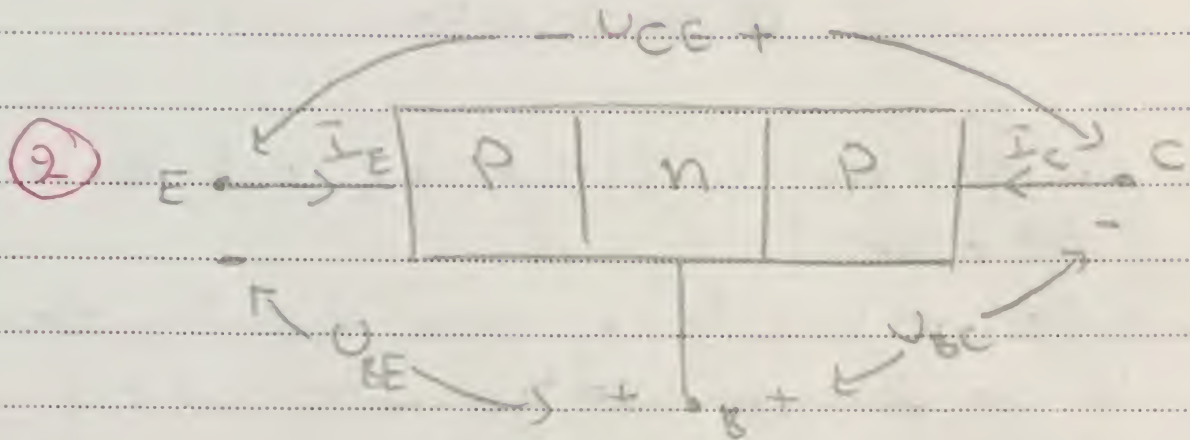 - VCE +
2 E IE P n P Ic C
- -
VBE VBC
+ B +